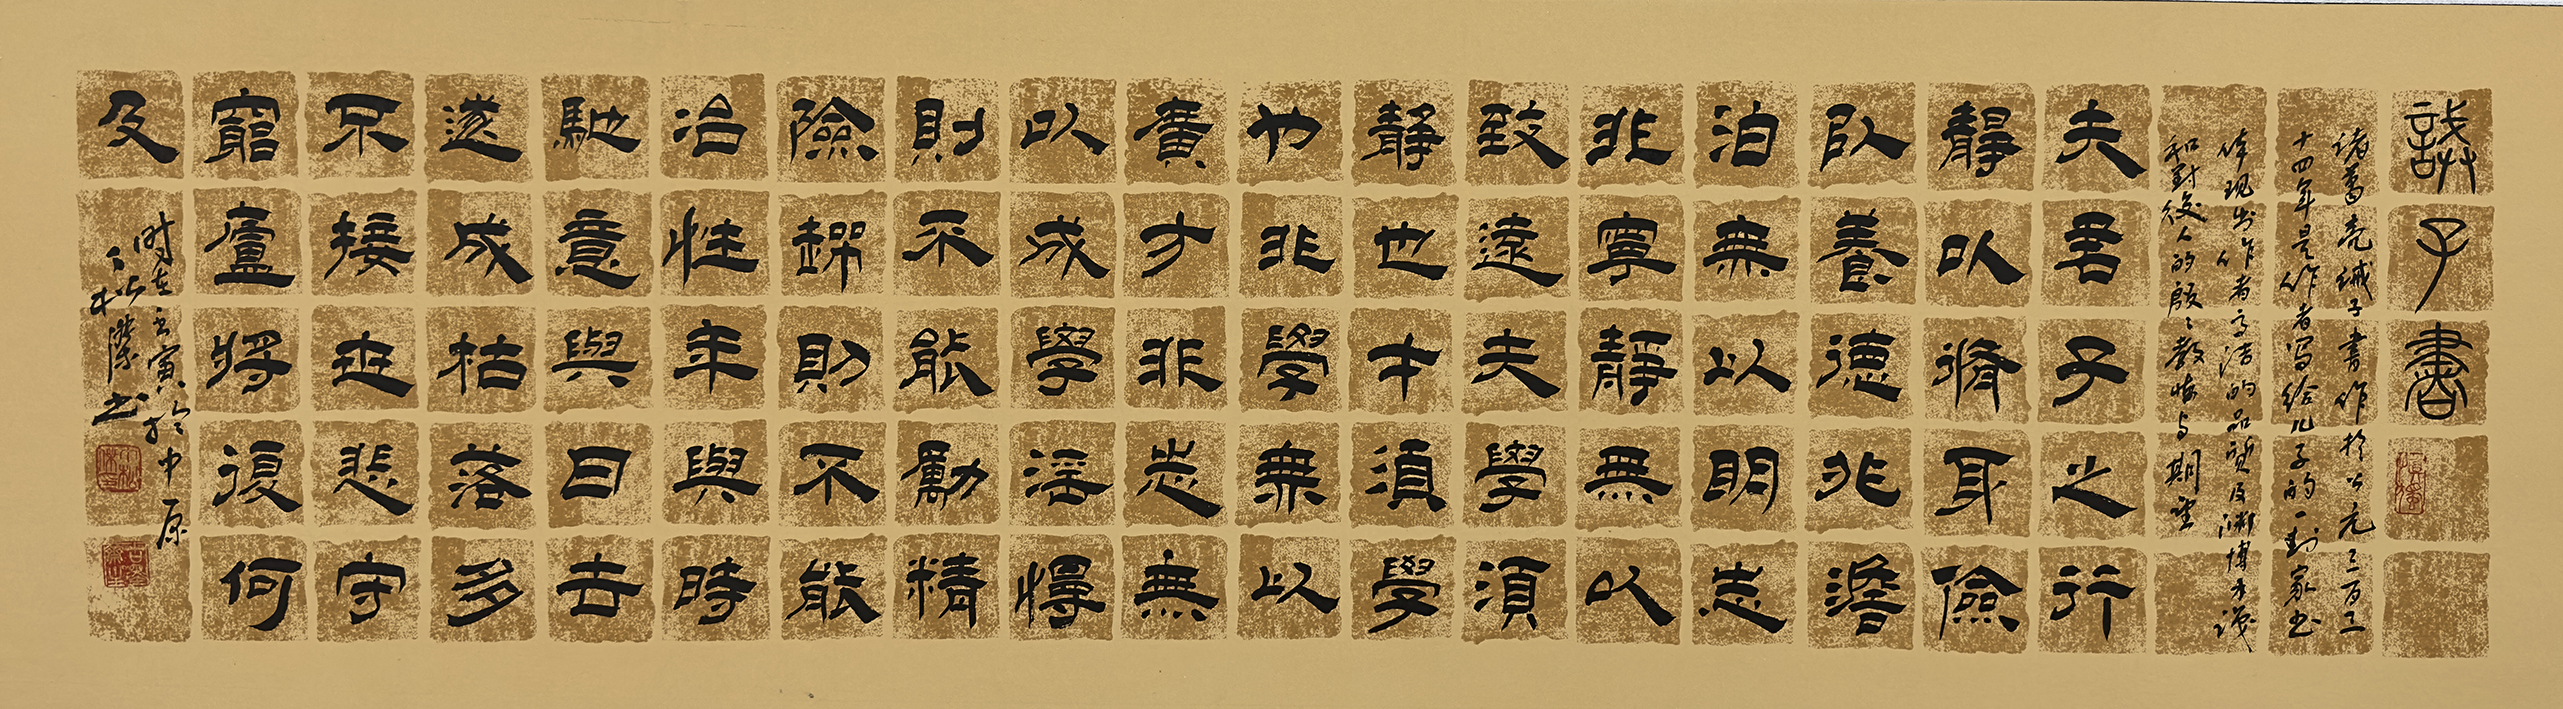 誡子書
诸葛亮诫子書作於公元二百三
十四年是作者写给儿子的一封家书
体现出作者高洁的品质及渊博才识
和對後人的殷殷教悔与期望
夫君子之行
靜以脩身儉
以養德非澹
泊無以明志
非寧靜無以
致遠夫學須
靜也才須學
也非學無以
廣才非志無
以成學淫慢
則不能勵精
險躁則不能
治性年與時
馳意與日去
遂成枯落多
不接世悲守
窮廬將復何
及
时在壬寅於中原
书